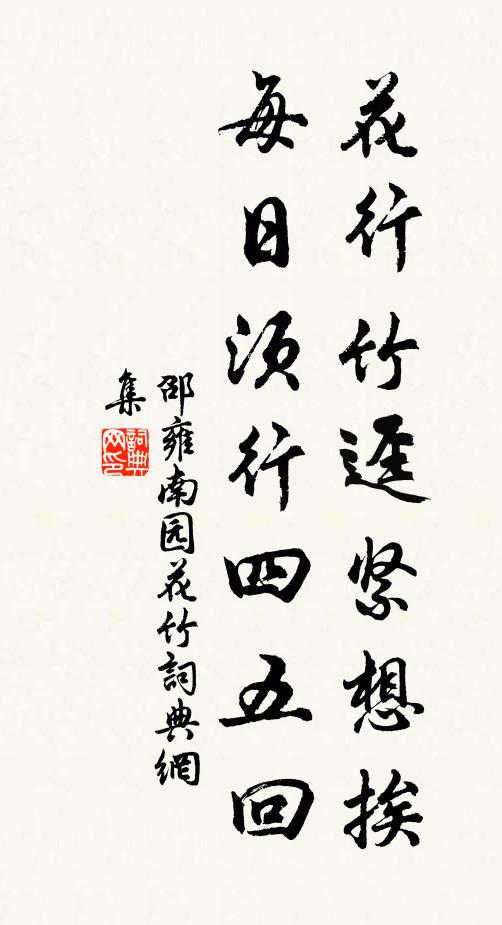 花行竹逕紧想挨
每日须行四五回
邵雍南园花竹詞典網
集
詞典网印